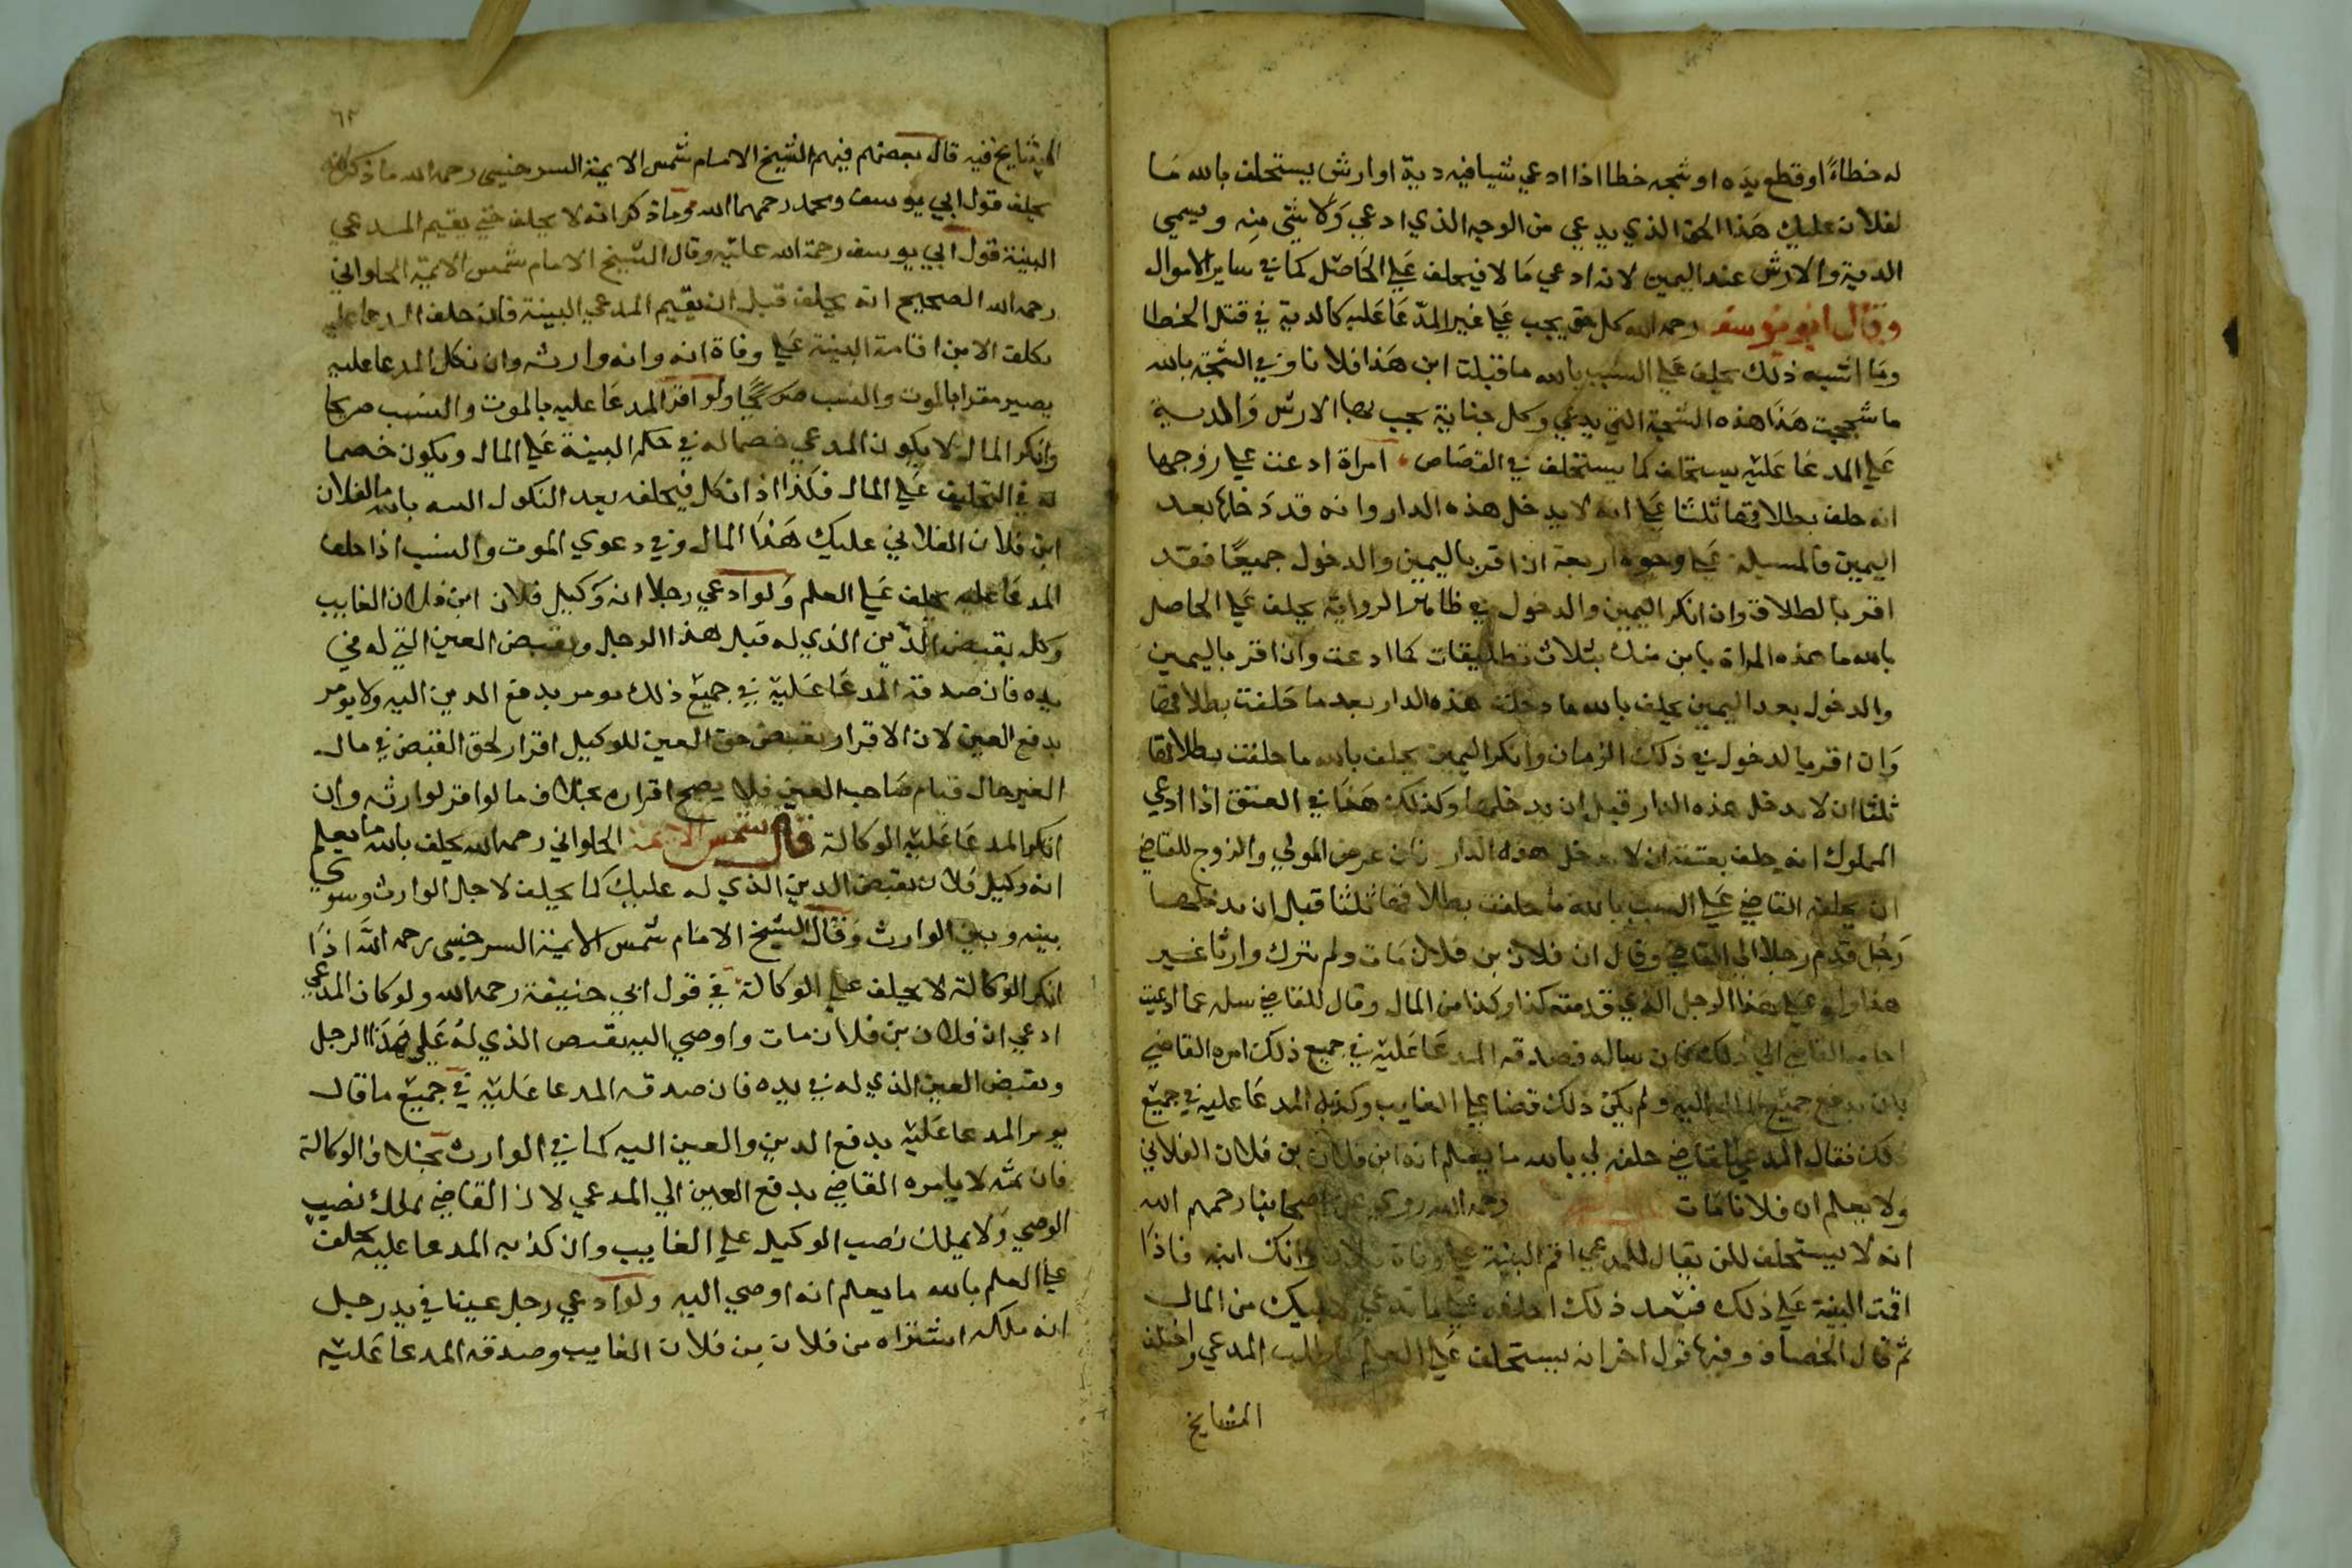 له خطاءً او قطع يده او شجه خطا اذا ادعي شيا فيه دية او ارش يستحلف بالله ما
لفلان عليك هذا الحق الذي يدعي من الوجه الذي ادعي ولا شي منه ويسمي
الدية والارش عند اليمين لانه ادعي مالا فيحلف علي الحاصل كما في ساير الاموال
وقال ابو يوسف رحمه الله كل حق يجب علي غير المدعا عليه كالدية في قتل الخطا
وما اشبه ذلك يحلف علي السبب بالله ما قتلت ابن هذا فلانا وفي الشجة بالله
ما شججت هذا هذه الشجة التي يدعي وكل جناية يجب بها الارش والدية
علي المدعا عليه يستحلف كما يستحلف في القصاص امراة ادعت علي زوجها
انه حلف بطلاقها ثلثا علي انه لا يدخل هذه الدار وانه قد دخلها بعد
اليمين فالمسيلة علي وجوه اربعة ان اقر باليمين والدخول جميعًا فقد
اقر بالطلاق وان انكر اليمين والدخول في ظاهر الرواية يحلف علي الحاصل
بالله ما هذه المراة باين منك بثلاث تطليقات كما ادعت وان اقر باليمين
والدخول بعد اليمين يحلف بالله ما دخلت هذه الدار بعد ما حلفت بطلاقها
وان اقر بالدخول في ذلك الزمان وانكر اليمين يحلف بالله ما حلفت بطلاقها
ثلثا ان لا يدخل هذه الدار قبل ان يدخلها وكذلك هذا في العتق اذا ادعي
المملوك انه حلف بعتقه ان لا يدخل هذه الدار فان عرض المولي والزوج للقاضي
ان يحلف القاضي علي السبب بالله ما حلفت بطلاقها ثلثا قبل ان يدخلها
رجل قدم رجلا الي القاضي وقال ان فلان بن فلان مات ولم يترك وارثا غير
هذا ولي علي هذا الرجل الذي قدمته كذا وكذا من المال وقال للقاضي سله عما ادعيت
اجابه القاضي الي ذلك فان ساله فصدقه المدعا عليه في جميع ذلك امره القاضي
بان يدفع جميع المال اليه ولم يكن ذلك قضا علي الغايب وكذبه المدعا عليه في جميع
ذلك فقال المدعي للقاضي حلفه لي بالله ما يعلم انه ابن فلان بن فلان الفلاني
ولا يعلم ان فلانا مات رحمه الله روي عن اصحابنا رحمهم الله
انه لا يستحلف لكن يقال للمدعي اقم البينة علي وفاة فلان وانك ابنه فاذا
اقمت البينة علي ذلك فبعد ذلك احلفه علي ما تدعي لابيك من المال
ثم قال الخصاف وفيها قول اخر انه يستحلف علي العلم كما طلب المدعي واختلف
المشايخ
٦٢
المشايخ فيه قال بعضهم فيهم الشيخ الامام شمس الايمة السرخسي رحمه الله ما ذكر انه
يحلف قول ابي يوسف ومحمد رحمهما الله وما ذكر انه لا يحلف حتي يقيم المدعي
البينة قول ابي يوسف رحمة الله عليه وقال الشيخ الامام شمس الايمة الحلواني
رحمه الله الصحيح انه يحلف قبل ان يقيم المدعي البينة فان حلف المدعا عليه
يكلف الابن اقامة البينة علي وفاة ابيه وانه وارثه وان نكل المدعا عليه
يصير مقرا بالموت والنسب صريحًا ولو اقر المدعا عليه بالموت والنسب صريحا
وانكر المال لا يكون المدعي خصما له في حكم البينة علي المال ويكون خصما
له في التحليف علي المال فكذا اذا نكل فيحلفه بعد النكول البتة بالله ما لفلان
ابن فلان الفلاني عليك هذا المال وفي دعوي الموت والنسب اذا حلف
المدعا عليه يحلف علي العلم ولو ادعي رجلا انه وكيل فلان ابن فلان الغايب
وكله بقبض الدين الذي له قبل هذا الرجل وبقبض العين التي له في
يده فان صدقه المدعا عليه في جميع ذلك يومر بدفع الدين اليه ولا يومر
بدفع العين لان الاقرار بقبض حق العين للوكيل اقرار لحق القبض في مال
الغير حال قيام صاحب العين فلا يصح اقراره بخلاف ما لو اقر لوارثه وان
انكر المدعا عليه الوكالة قال شمس الايمة الحلواني رحمه الله يحلف بالله ما يعلم
انه وكيل فلان بقبض الدين الذي له عليك كما يحلف لاجل الوارث وسوي
بينه وبين الوارث وقال الشيخ الامام شمس الايمة السرخسي رحمه الله اذا
انكر الوكالة لا يحلف علي الوكالة في قول ابي حنيفة رحمه الله ولو كان المدعي
ادعي ان فلان بن فلان مات واوصي اليه بقبض الذي له علي هذا الرجل
وبقبض العين الذي له في يده فان صدقه المدعا عليه في جميع ما قال
يومر المدعا عليه بدفع الدين والعين اليه كما في الوارث بخلاف الوكالة
فان ثمه لا يامره القاضي بدفع العين الي المدعي لان القاضي يملك نصب
الوصي ولا يملك نصب الوكيل علي الغايب وان كذبه المدعا عليه يحلف
علي العلم بالله ما يعلم انه اوصي اليه ولو ادعي رجل عينا في يد رجل
انه ملكه اشتراه من فلان بن فلان الغايب وصدقه المدعا عليه